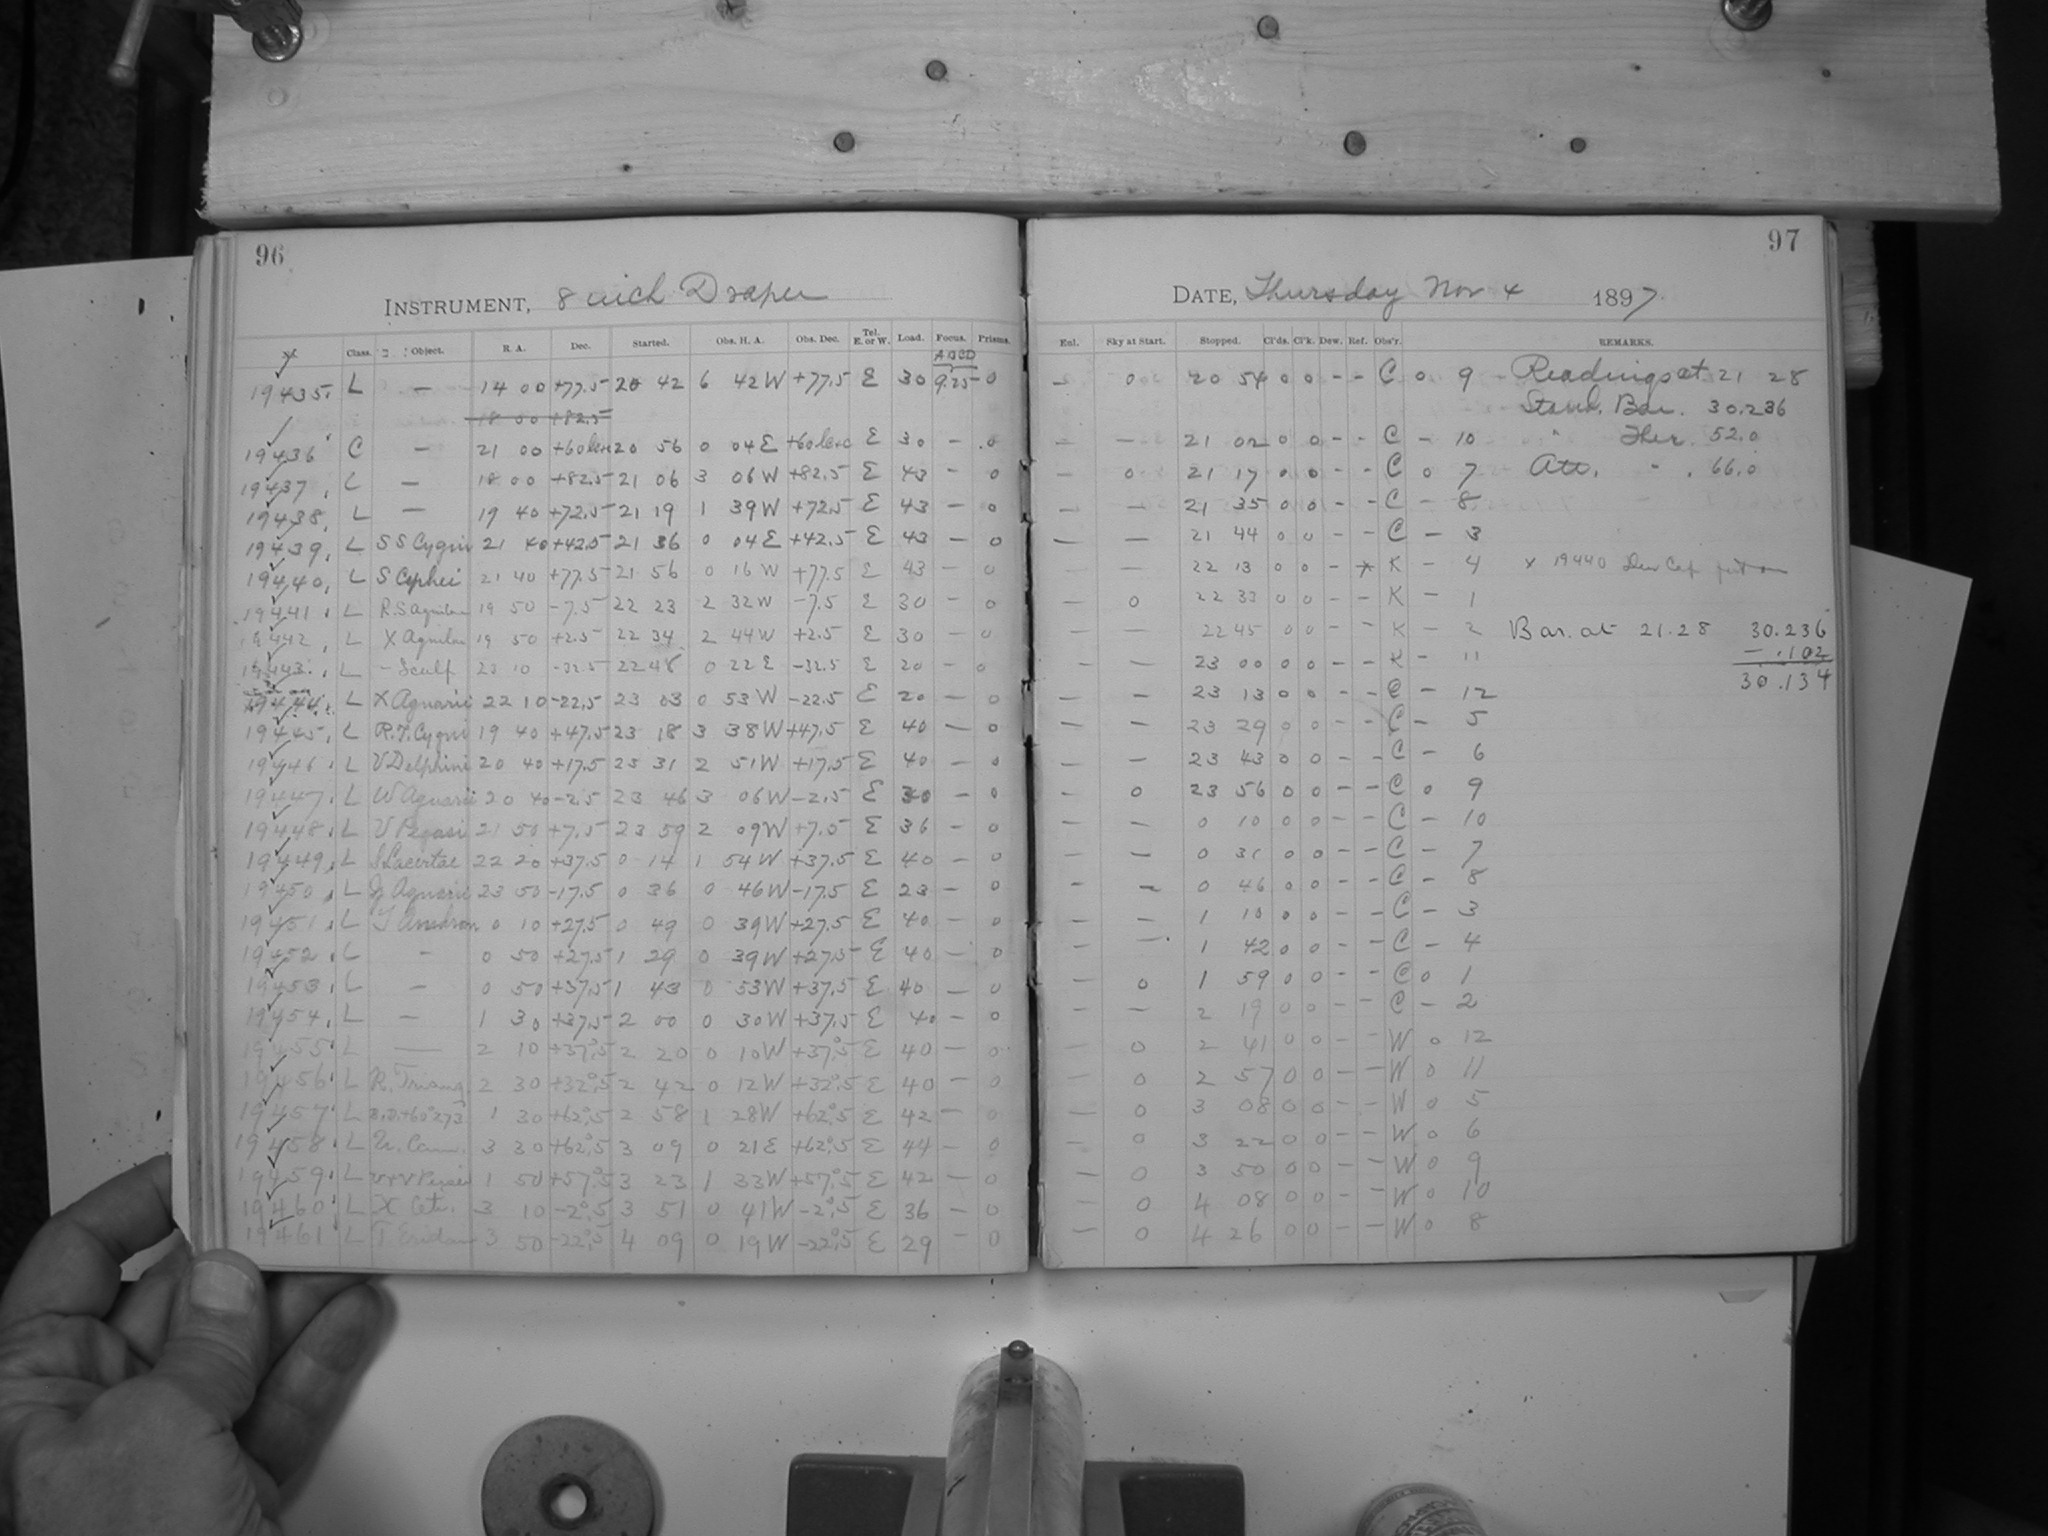 96
INSTRUMENT, 8 inch Draper
Class. Object. R. A. Dec. Started. Obs. H. A. Obs. Dec. Tel. E. or W. Load. Focus. Prisms.
ABCD
19435 L — 14 00 +77.5 20 42 6 42 W +77.5 E 30 9.25 0
18 00 +82.5
19436 C — 21 00 +60 20 56 0 04 E +60 E 30 — 0
19437 L — 18 00 +82.5 21 06 3 06 W +82.5 E 43 — 0
19438 L — 19 40 +72.5 21 19 1 39 W +72.5 E 43 — 0
19439 L SS Cygni 21 40 +42.5 21 36 0 04 E +42.5 E 43 — 0
19440 L S Cephei 21 40 +77.5 21 56 0 16 W +77.5 E 43 — 0
19441 L R.S Aquilae 19 50 -7.5 22 23 2 32 W -7.5 E 30 — 0
19442 L X Aquilae 19 50 +2.5 22 34 2 44 W +2.5 E 30 — 0
19443 L - Sculp 23 10 -32.5 22 48 0 22 E -32.5 E 20 — 0
19444 L X Aquarii 22 10 -22.5 23 03 0 53 W -22.5 E 20 — 0
19445 L R.T. Cygni 19 40 +47.5 23 18 3 38 W +47.5 E 40 — 0
19446 L V Delphini 20 40 +17.5 23 31 2 51 W +17.5 E 40 — 0
19447 L W Aquarii 20 40 -2.5 23 46 3 06 W -2.5 E 30 — 0
19448 L V Pegasi 21 50 +7.5 23 59 2 09 W +7.5 E 36 — 0
19449 L S Lacertae 22 20 +37.5 0 14 1 54 W +37.5 E 40 — 0
19450 L Aquarii 23 50 -17.5 0 36 0 46 W -17.5 E 23 — 0
19451 L T Androm 0 10 +27.5 0 49 0 39 W +27.5 E 40 — 0
19452 L — 0 50 +27.5 1 29 0 39 W +27.5 E 40 — 0
19453 L — 0 50 +37.5 1 43 0 53 W +37.5 E 40 — 0
19454 L — 1 30 +37.5 2 00 0 30 W +37.5 E 40 — 0
19455 L — 2 10 +37°.5 2 20 0 10 W +37°.5 E 40 — 0
19456 L R. Triang. 2 30 +32°.5 2 42 0 12 W +32°.5 E 40 — 0
19457 L +60°273 1 30 +62°.5 2 58 1 28 W +62°.5 E 42 — 0
19458 L Cam. 3 30 +62°.5 3 09 0 21 E +62°.5 E 44 — 0
19459 L Persei 1 50 +57°.5 3 23 1 33 W +57°.5 E 42 — 0
19460 L X Ceti. 3 10 -2°.5 3 51 0 41 W -2°.5 E 36 — 0
19461 L T Eridani 3 50 -22°.5 4 09 0 19 W -22°.5 E 29 — 0
97
DATE, Thursday Nov 4 1897
Enl. Sky at Start. Stopped. Cl'ds. Cl'k. Dew. Ref. Obs'r. REMARKS.
— 0 20 54 0 0 - - C 0 9 Readings at 21 28
Stand. Bar. 30.236
— — 21 02 0 0 - - C - 10 " Ther. 52.0
— 0 21 17 0 0 - - C 0 7 Att. " . 66.0
— — 21 35 0 0 - - C - 8
— — 21 44 0 0 - - C - 3
— — 22 13 0 0 - * K - 4 x 19440 Dew Cap put on
— 0 22 33 0 0 - - K - 1
— — 22 45 0 0 - - K - 2 Bar. at 21.28 30.236
- .102
— — 23 00 0 0 - - K - 11
30.134
— — 23 13 0 0 - - C - 12
— — 23 29 0 0 - - C - 5
— — 23 43 0 0 - - C - 6
— 0 23 56 0 0 - - C 0 9
— — 0 10 0 0 - - C - 10
— — 0 31 0 0 - - C - 7
— — 0 46 0 0 - - C - 8
— — 1 10 0 0 - - C - 3
— — 1 42 0 0 - - C - 4
— 0 1 59 0 0 - - C 0 1
— — 2 19 0 0 - - C - 2
— 0 2 41 0 0 - - W 0 12
— 0 2 57 0 0 - - W 0 11
— 0 3 08 0 0 - - W 0 5
— 0 3 22 0 0 - - W 0 6
— 0 3 50 0 0 - - W 0 9
— 0 4 08 0 0 - - W 0 10
— 0 4 26 0 0 - - W 0 8